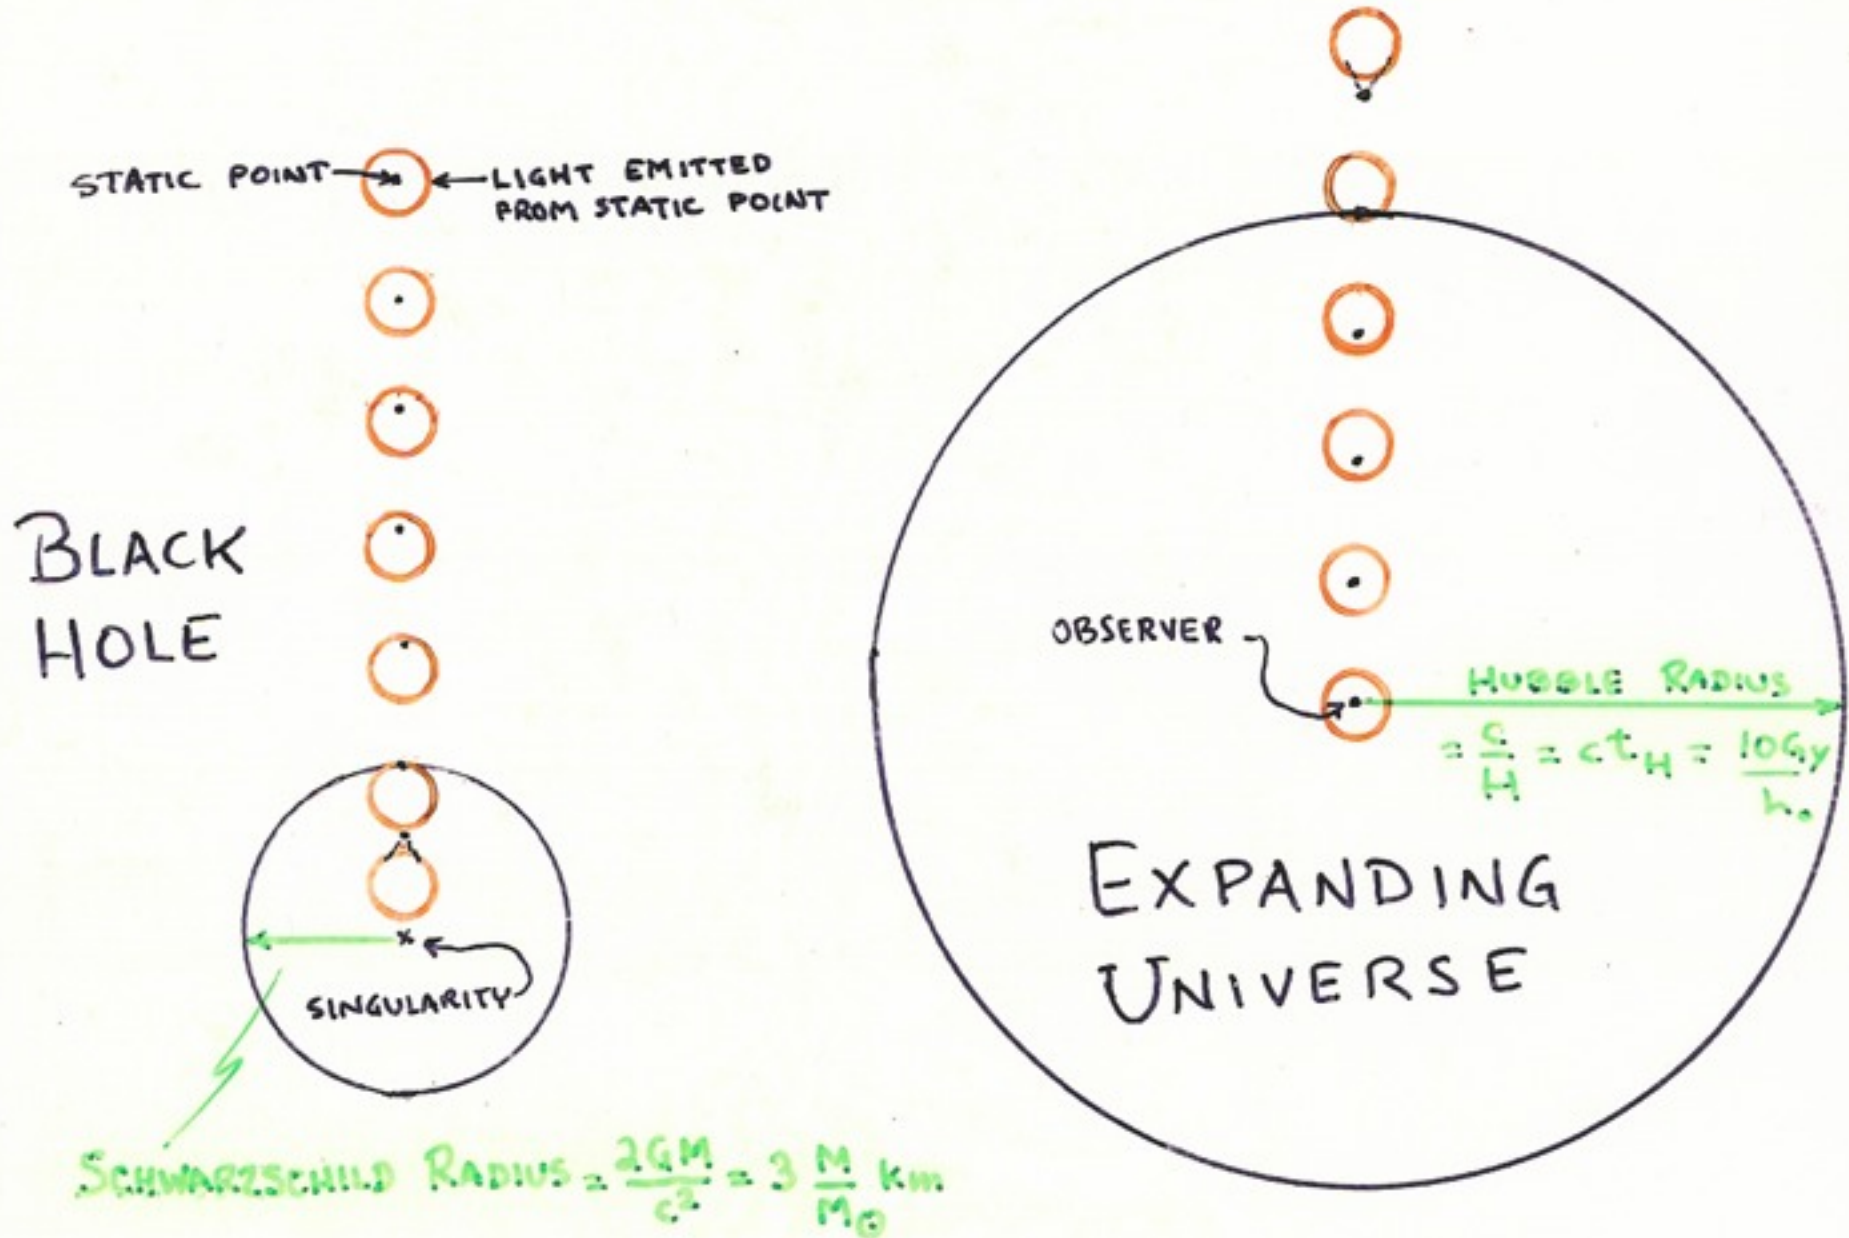 STATIC POINT
LIGHT EMITTED
FROM STATIC POINT
BLACK
HOLE
SINGULARITY
SCHWARZSCHILD RADIUS = 2GM/c² = 3 M/M⊙ km
OBSERVER
HUBBLE RADIUS
= c/H = ct_H = 10Gy/h₀
EXPANDING
UNIVERSE